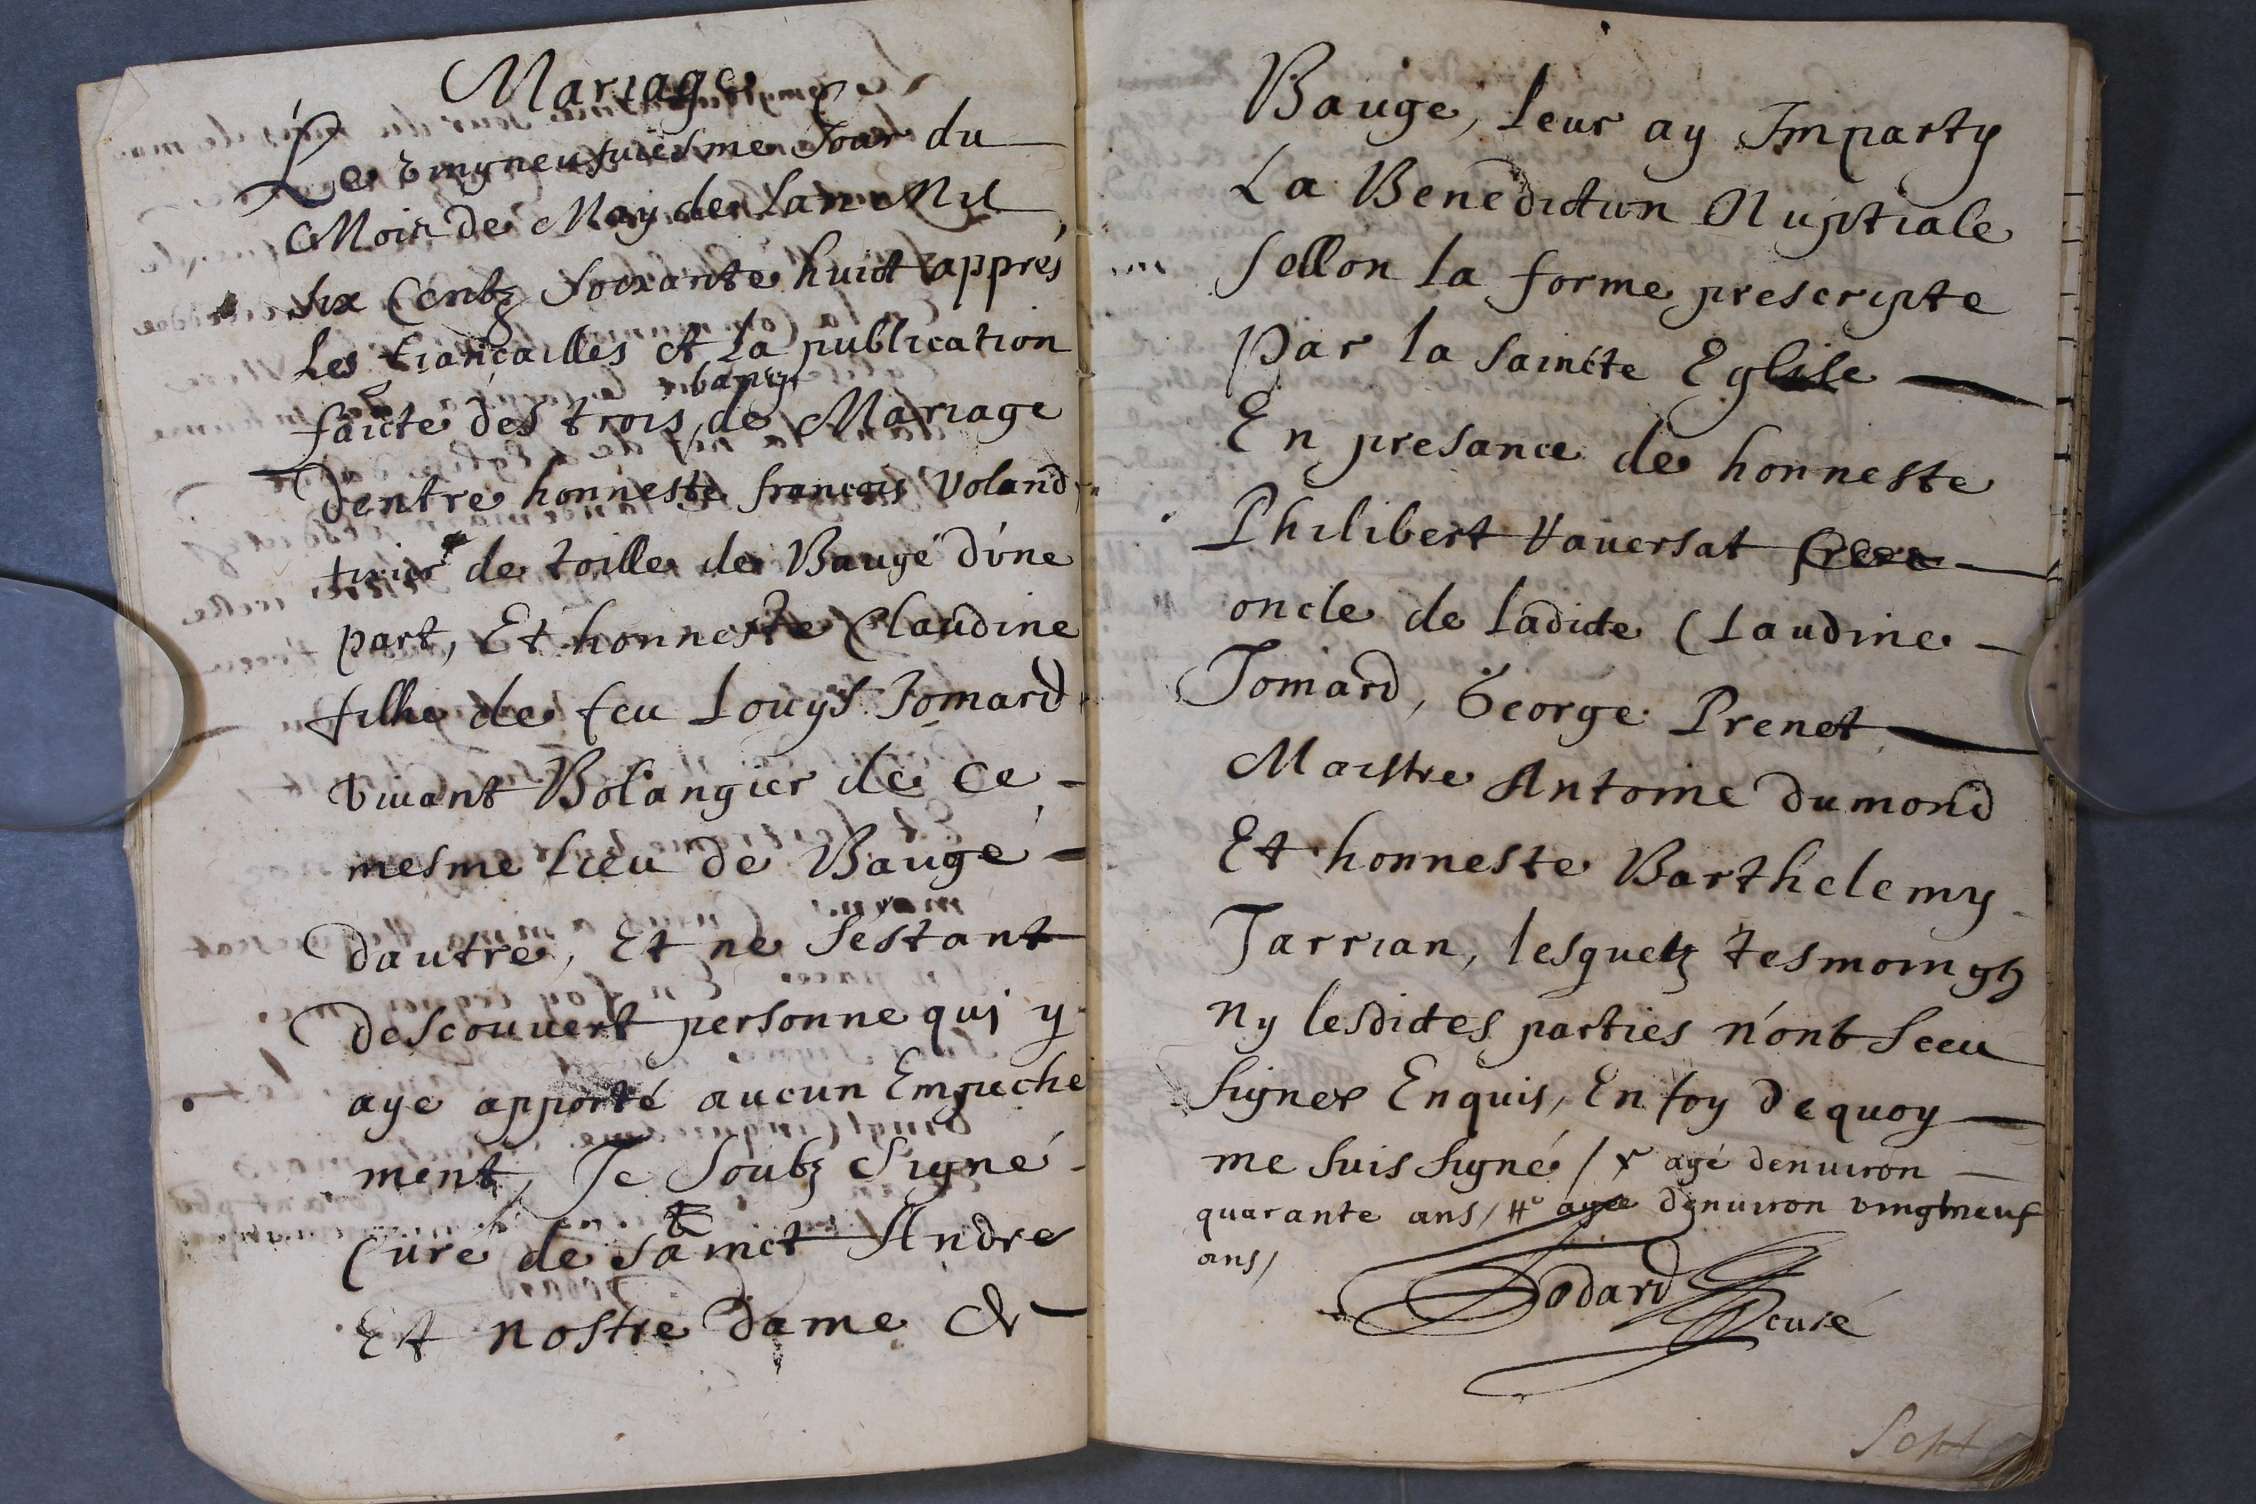 Mariage
Le vingneufuiesme Jour du
Mois de May de Lan Mil
six Centz Soixante huict appres
Les fiançailles et La publication
bancz
faicte des trois de Mariage
dentre honneste francois Voland
tixier de toille de Baugé dúne
part, Et honneste Claudine
fille de feu Louys Jomard
vivant Bolangier de ce
mesme lieu de Baugé
dautre, Et ne séstant
descouuert personne qui y
aye apporté aucun Empeche
ment, Je Soubz Signé
Curé de sainct Andre
Et nostre dame de
Baugé, leur ay Imparty
La Benediction Nuptiale
sellon la forme prescripte
par la saincte Eglise
En presance de honneste
Philibert Vauersat frere
oncle de ladicte Claudine
Jomard, George Prenet
Maistre Antoine Dumond
Et honneste Barthelemy
Jarrian, lesquelz tesmoingz
ny lesdictes parties n'ont sceu
signer Enquis, En foy dequoy
me suis signé / x agé denuiron
quarante ans / # agee denuiron vingtneuf
ans /
Godard
curé
Sept